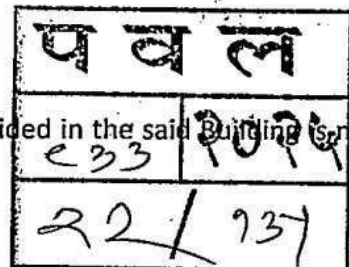 प व ल
ided in the said Building is n
९३३ २०२५
२२/१३५